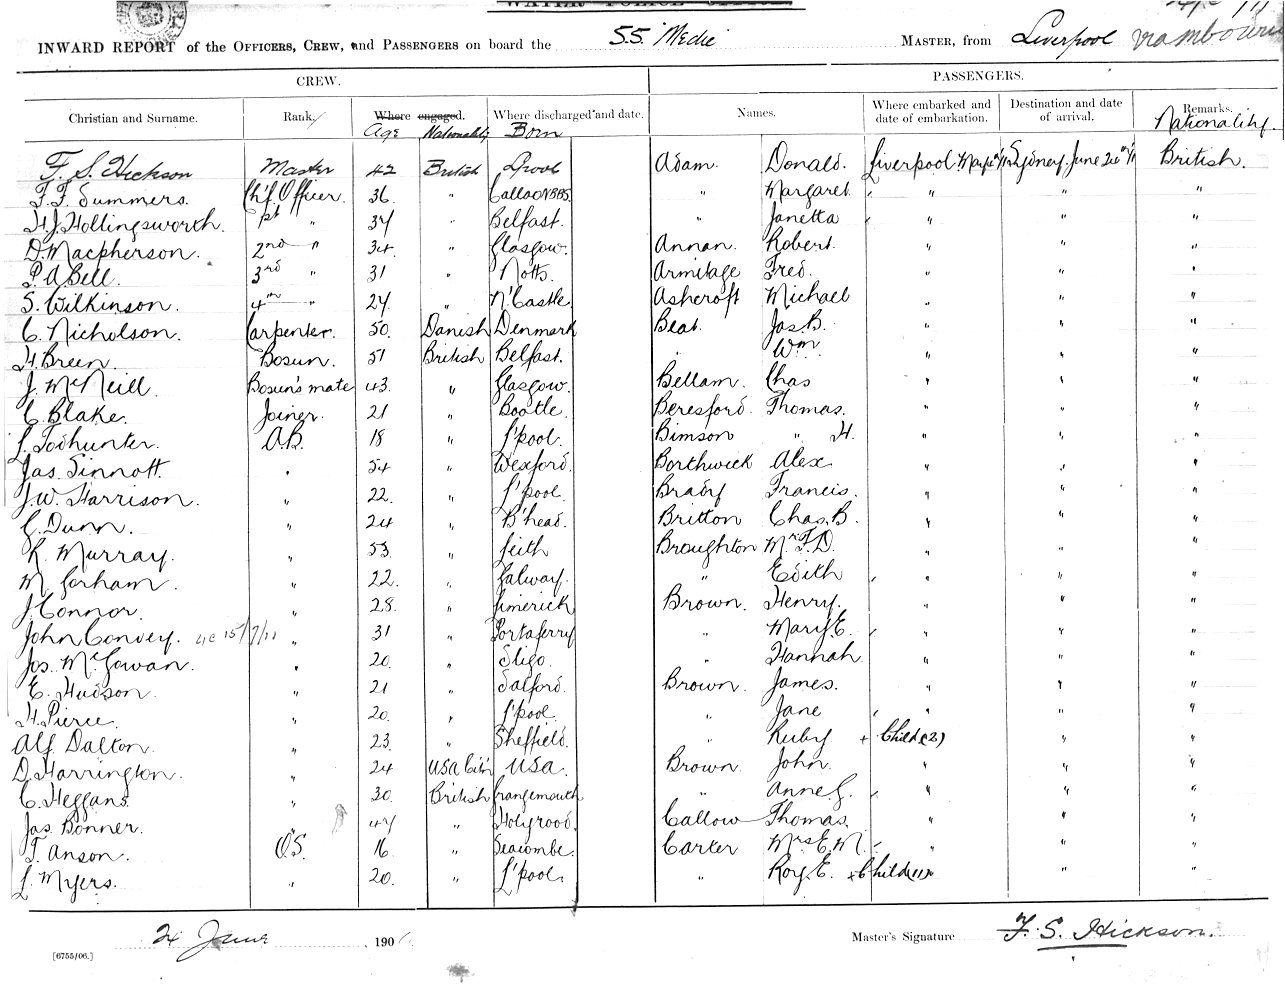 WATER POLICE OFFICE
INWARD REPORT of the OFFICERS, CREW, and PASSENGERS on board the S.S. Medic MASTER, from Liverpool
CREW. PASSENGERS.
Christian and Surname. Rank. Where engaged. Where discharged and date. Names. Where embarked and date of embarkation. Destination and date of arrival. Remarks.
Age Nationality Born Nationality
F. S. Hickson Master 42 British Lpool Adam Donald. Liverpool Sydney June British.
F. F. Summers. Chf Officer. 36 " Callao " Margaret " " "
H. J. Hollingsworth. 1st " 37 " Belfast. " Janetta " " "
D. Macpherson. 2nd " 34. " Glasgow. Annan. Robert. " " "
P. A. Bell. 3rd " 31 " Notts. Armitage Fred. " " "
S. Wilkinson. 4th " 24. " N'Castle Ashcroft Michael " " "
C. Nicholson. Carpenter. 50. Danish Denmark Beat. Jas B. " " "
H. Breen. Bosun. 51 British Belfast. " Wm " " "
J. McNeill. Bosun's mate 43. " Glasgow. Bellam. Chas " " "
C. Blake. Joiner. 21 " Bootle. Beresford. Thomas. " " "
L. Todhunter. A.B. 18 " L'pool. Bimson " H. " " "
Jas. Sinnott. " 54 " Wexford. Borthwick Alex " " "
J. W. Harrison. " 22. " L'pool. Brady Francis. " " "
G. Dunn. " 24 " B'head. Britton Chas. B. " " "
R. Murray. " 53. " Leith Broughton Mr F. D. " " "
M. Gorham. " 22. " Galway. " Edith " " "
J. Connor. " 28. " Limerick Brown. Henry. " " "
John Convey. " 31 " Portaferry " Mary E. " " "
Jos. McGowan. " 20. " Sligo. " Hannah " " "
E. Hudson. " 21 " Salford. Brown. James. " " "
H. Pierce. " 20. " L'pool. " Jane " " "
Alf Dalton. " 23. " Sheffield. " Ruby + Child (2) " "
D. Harrington. " 24 USA Citn USA. Brown. John. " " "
C. Heggans. " 30 British Grangemouth " Anne G. " " "
Jas. Bonner. " 47 " Holyrood. Callow Thomas. " " "
T. Anson. O.S. 16 " Seacombe. Carter Mrs E. M. " " "
L. Myers. " 20. " L'pool. " Roy E. + Child " "
24 June 190 Master's Signature F. S. Hickson.
[6755/06.]